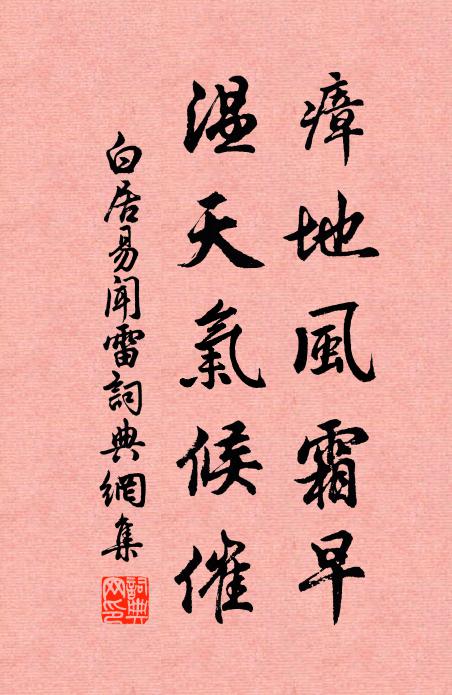 瘴地風霜早
温天氣候催
白居易聞雷詞典網集
詞典網印